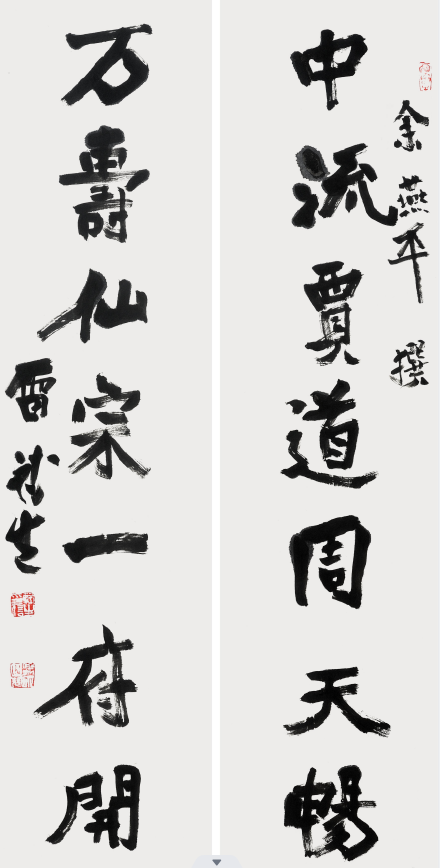 余燕平 撰
中流賈道周天暢
万壽仙宗一府開
雷 生